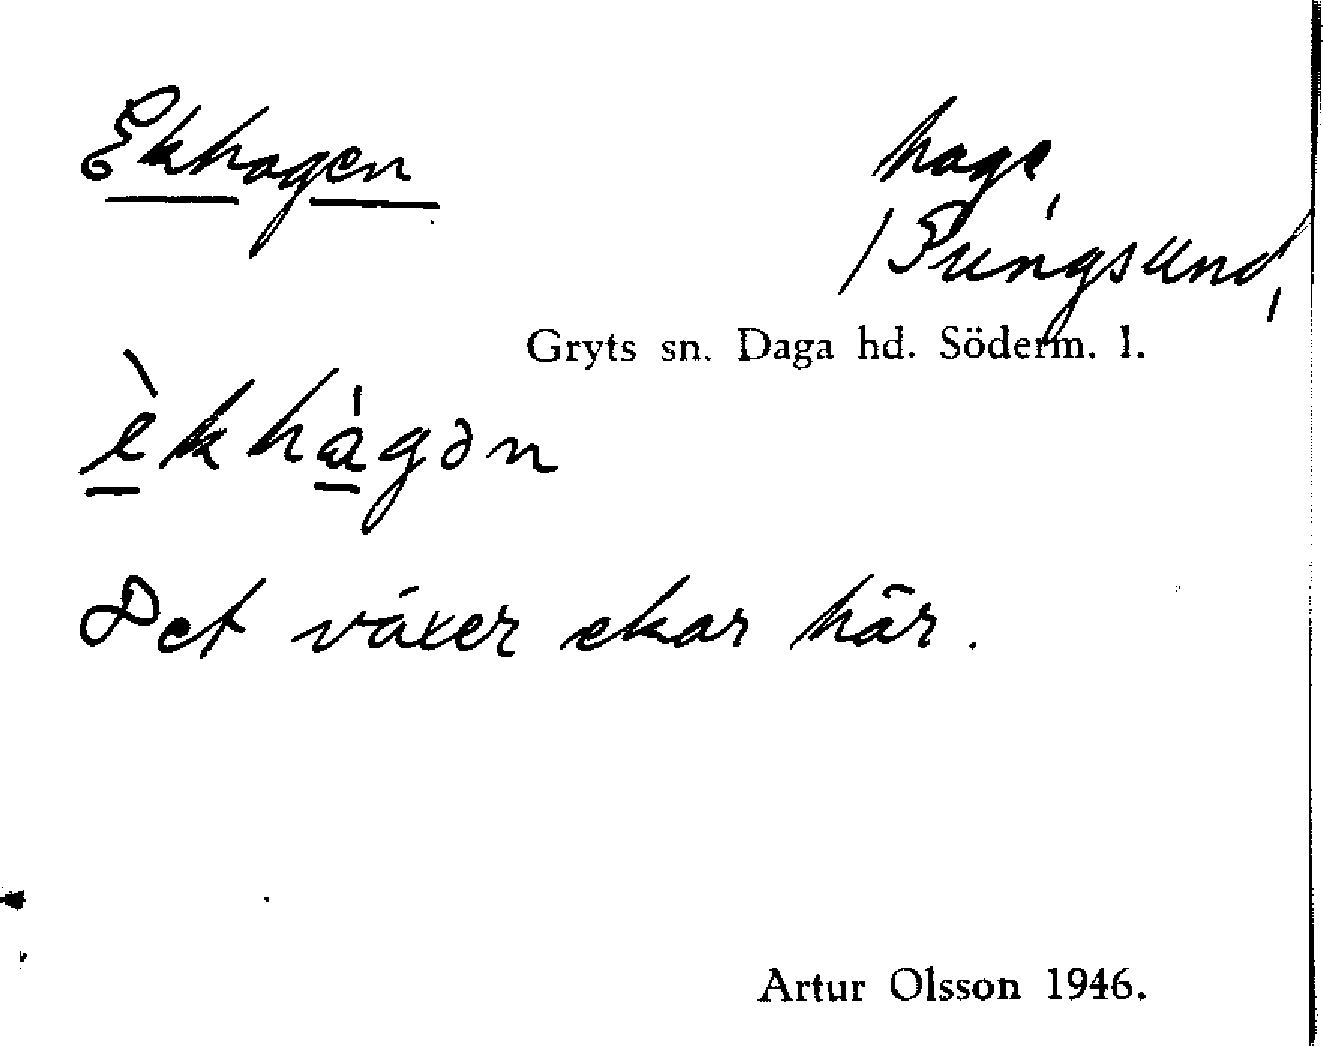 Ekhagen
hage,
/Pungsund,
Gryts sn. Daga hd. Söderm. l.
èkhágən
Det växer ekar här.
Artur Olsson 1946.